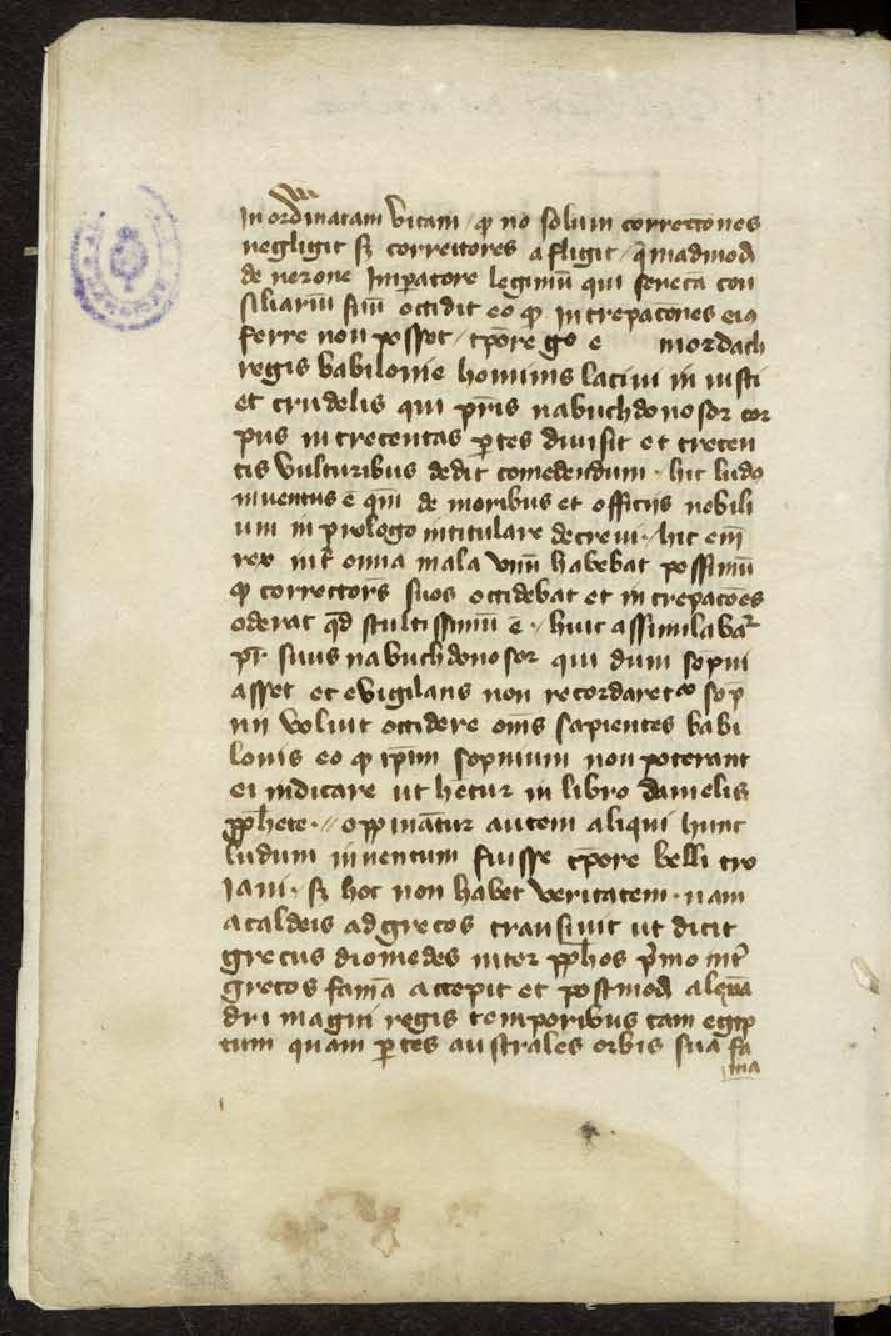 In ordinatam vitam / ꝙ nō solum correctiones
negligit sꝫ correctores a fligit / q̄madmodū
de nerone Imp̄atore legimꝰ qui seneca con
siliariū suū occidit eo ꝙ in crepacōnes eiꝰ
ferre non posset / tp̄ore g° e mordach
regis babilonie hominis lacivi in iusti
et crudelis qui pr̄is nabuchdonosor cor
pus in trecentas ꝑtes divisit et trecen
tis vulturibus dedit comedendum · hic ludꝰ
inventus ē quē de moribus et officijs nobili
um in prologo intitulare decrevi · / hic em̄
rex int̄ omia mala vnū habebat pessimū
ꝙ correctors̄ suos occidebat et in crepacōes
oderat qd̄ stultissimū ē · / huic assimilabat᷑
pr̄ suus nabuchdonosor qui dum sopni
asset et evigilans non recordaretᷣ sop̄
nii voluit occidere om̄s sapientes babi
lonis eo ꝙ ip̄im sopnium non poterant
ei indicare ut hētur in libro danielis
ꝓphete · // oppināntur autem aliqui hunc
ludum inventum fuisse tp̄ore belli tro
iani · sꝫ hoc non habet veritatem · nam
a caldeis ad grecos transivit ut dicit
grecus diomedes inter ꝓphos p̄mo int̄
grecos famā accepit et postmodū alexā
dri magni regis temporibus tam egip
tum quam ꝑtes australes orbis sua fa
ma